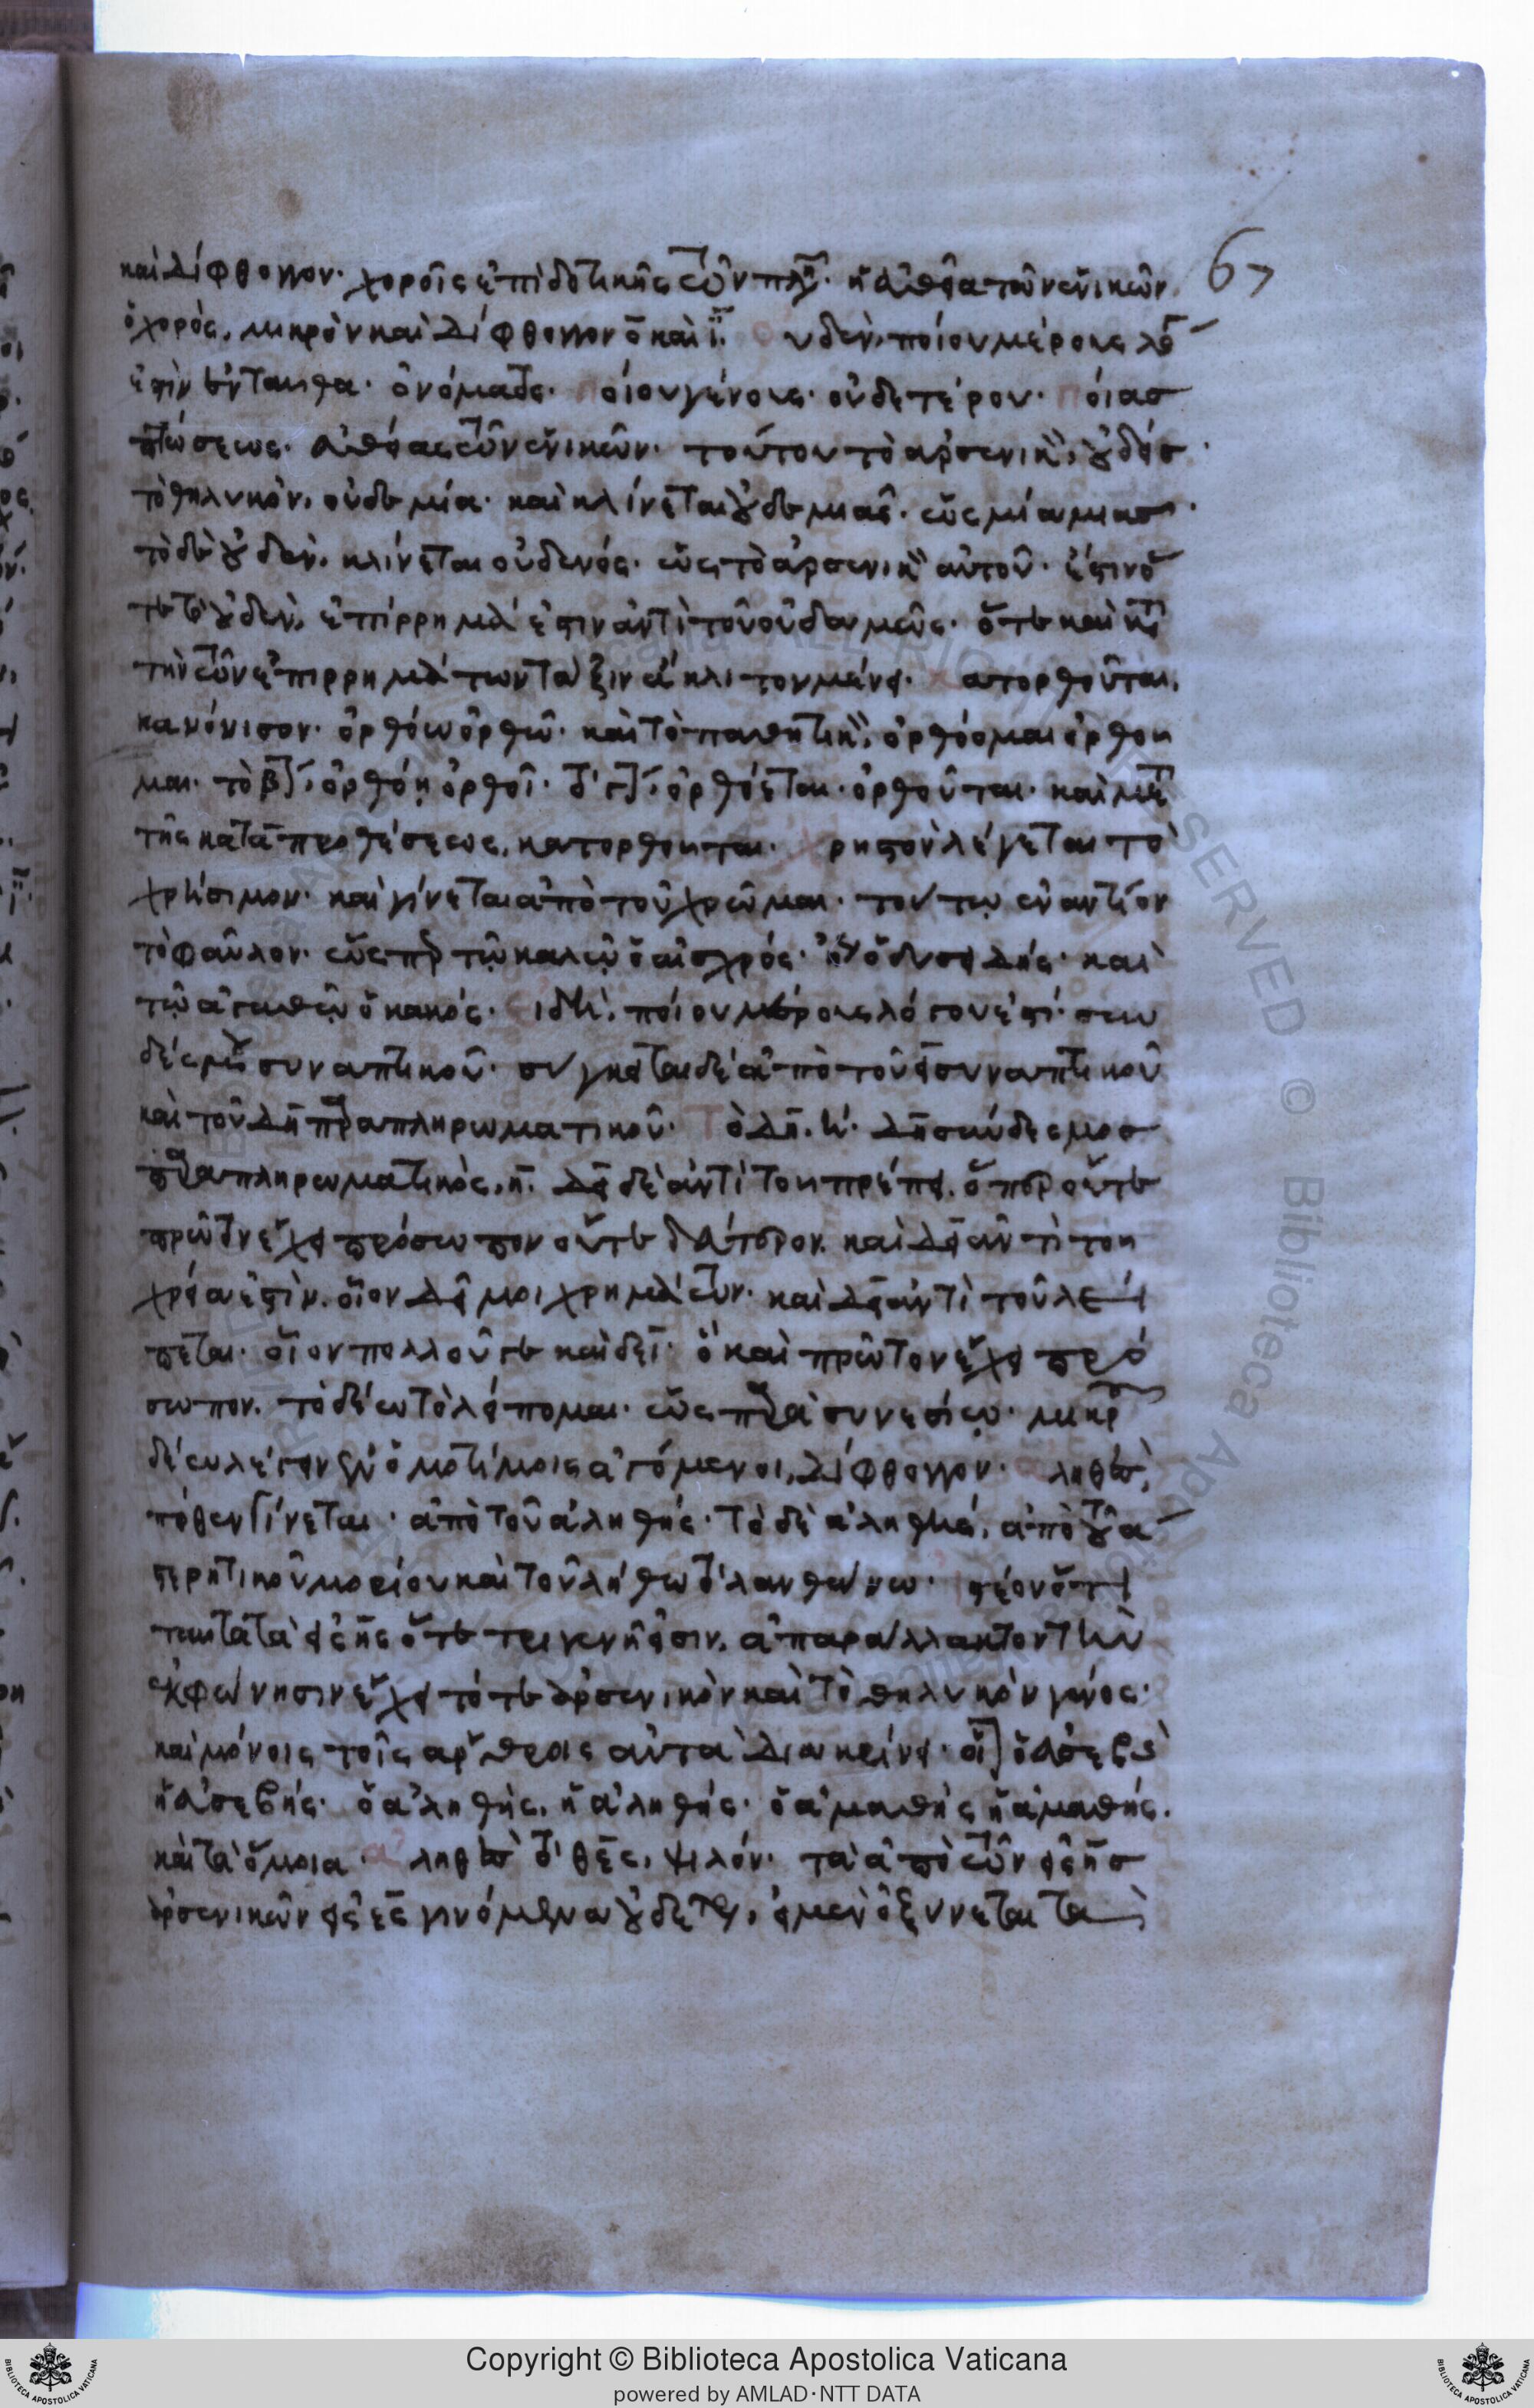 67
καὶ δίφθογγον· χοροῖς ἐπὶ δοτικῆς τῶν πλη· ἡ εὐθεῖα τῶν ἑνικῶν
ὁ χορός, μικρὸν καὶ δίφθογγον ὂ καὶ ϊ· Οὐδὲν, ποίου μέρους λό
ἐστὶν ἐνταῦθα· ὀνόματος· Ποίου γένους· οὐδετέρου· Ποίας
πτώσεως· εὐθείας τῶν ἑνικῶν· τούτου τὸ ἀρσενικ, οὐδείς·
τὸ θηλυκόν, οὐδεμία· καὶ κλίνεται οὐδεμιᾶς· ὡς μία μιας·
τὸ δὲ οὐδέν, κλίνεται οὐδενός· ὡς τὸ ἀρσενικ αὐτοῦ· ἔστιν ὅ
τε τὸ οὐδέν, ἐπίρρημά ἐστιν ἀντὶ τοῦ οὐδαμῶς· ὅτε καὶ κτ
τὴν τῶν ἐπιρρημάτων τάξιν ἄκλιτον μένει· Κατορθοῦται,
κανόνισον· ὀρθόω ὀρθῶ· καὶ τὸ παθητικ, ὀρθόομαι ὀρθοῦ
μαι· τὸ β, ὀρθόῃ ὀρθοῖ· τὸ γ, ὀρθόεται· ὀρθοῦται· καὶ με
τῆς κατὰ προθέσεως, κατορθοῦται· Χρηστὸν λέγεται τὸ
χρήσιμον· καὶ γίνεται ἀπὸ τοῦ χρῶμαι· τούτῳ ἐναντίον
τὸ φαῦλον· ὡς περ τῷ καλῷ ὁ αἰσχρός· ἢ ὁ δυσειδής· καὶ
τῷ ἀγαθῷ ὁ κακός· Εἰ δὴ, ποίου μέρους λόγου ἐστί· συν
δέσμου συναπτικοῦ· σύγκειται δὲ ἀπὸ τοῦ εἰ συναπτικοῦ
καὶ τοῦ δὴ παραπληρωματικοῦ· Τὸ δὴ, η· δὴ σύνδεσμος
παραπληρωματικὸς, η· δεῖ δὲ ἀντὶ τοῦ πρέπει, ὅπερ οὔτε
πρῶτον ἔχει πρόσωπον οὔτε δεύτερον· καὶ δεῖ ἀντὶ τοῦ
χρεία ἐστὶν· οἷον δεῖ μοι χρημάτων· καὶ δεῖ ἀντὶ τοῦ λεί
πεται· οἷον πολλοῦ γε καὶ δεῖ· ὃ καὶ πρῶτον ἔχει πρό
σωπον, τὸ δέω τὸ λείπομαι· ὡς παρὰ συνεσίῳ· μικρ
δέω λέγειν ὁμοτίμοις ἀγόμενοι, δίφθογγον· Ἀληθῶς,
πόθεν γίνεται· ἀπὸ τοῦ ἀληθής· τὸ δὲ ἀληθής, ἀπὸ τοῦ α
στερητικοῦ μορίου καὶ τοῦ λήθω τὸ λανθάνω· Ἰστέον ὅτι
ταῦτα τὰ εἰς ης ὅτε τριγενῆ εἰσιν, ἀπαράλλακτον τὴν
ἐκφώνησιν ἔχει τό τε ἀρσενικὸν καὶ τὸ θηλυκὸν γένος·
καὶ μόνοις τοῖς ἄρθροις αὐτὰ διακρίνει· οἷ ὁ εὐσεβὴς
ἡ εὐσεβής· ὁ ἀληθής, ἡ ἀληθής· ὁ ἀμαθής ἡ ἀμαθής·
καὶ τὰ ὅμοια· Ἀληθὲς τὸ θες, ψιλόν· τὰ ἀπὸ τῶν εἰς ης
ἀρσενικῶν εἰς ες γινόμενα οὐδετερ, εἰ μὲν ὀξύνεται τὰ
Copyright © Biblioteca Apostolica Vaticana
powered by AMLAD·NTT DATA